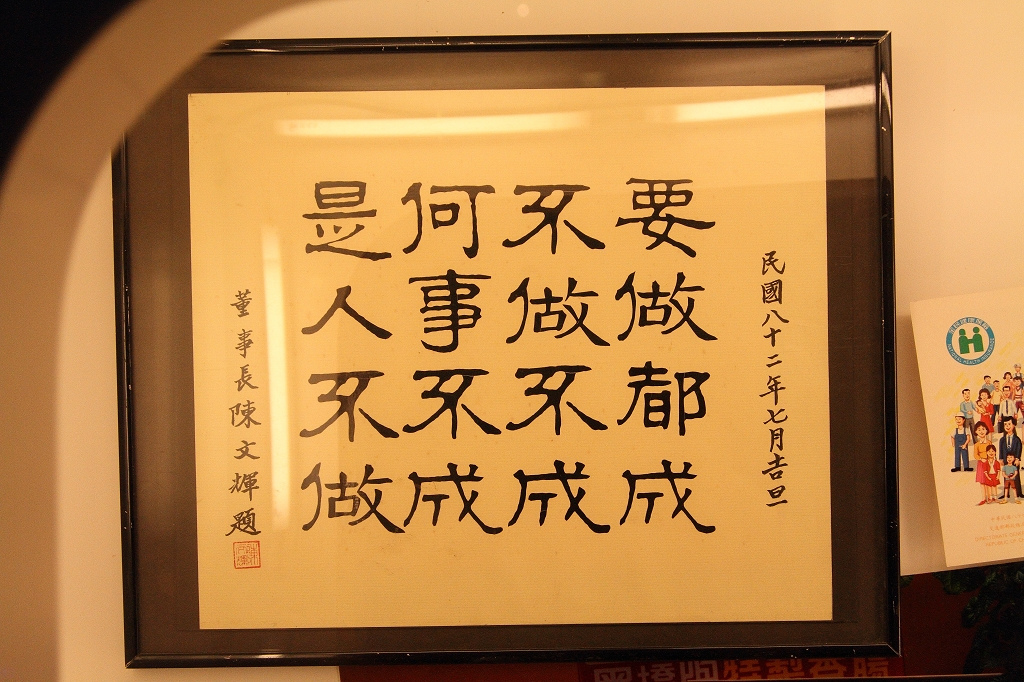 民國八十二年七月吉旦
要做都成
不做不成
何事不成
是人不做
董事長陳文輝題